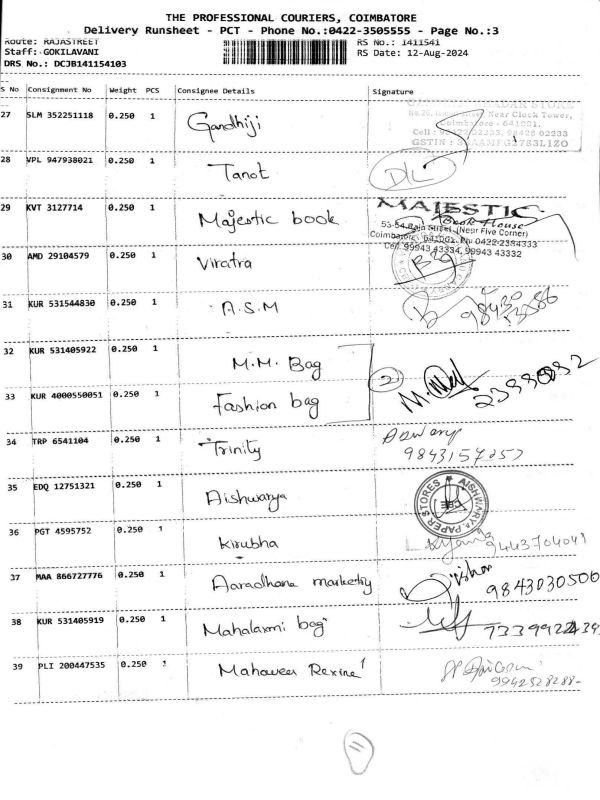 THE PROFESSIONAL COURIERS, COIMBATORE
Delivery Runsheet - PCT - Phone No.:0422-3505555 - Page No.:3
Route: RAJASTREET
RS No.: 1411541
Staff: GOKILAVANI
RS Date: 12-Aug-2024
DRS No.: DCJB141154103
S No Consignment No Weight PCS Consignee Details Signature
27 SLM 352251118 0.250 1 Gandhiji
Near Clock Tower,
Coimbatore - 641001.
28 VPL 947938021 0.250 1 Tanot DL
29 KVT 3127714 0.250 1 Majestic book
MAJESTIC
Book House
53-54 Raja Street, (Near Five Corner)
Coimbatore 641001. Ph: 0422-2384333
Cell: 99943 43334, 99943 43332
30 AMD 29104579 0.250 1 Viratra
31 KUR 531544830 0.250 1 A.S.M
32 KUR 531405922 0.250 1 M.M. Bag
2
33 KUR 4000550051 0.250 1 Fashion bag
34 TRP 6541104 0.250 1 Trinity
35 EDQ 12751321 0.250 1 Aishwarya
AISHWARYA PAPER STORES
36 PGT 4595752 0.250 1 Kirubha 9443704041
37 MAA 866727776 0.250 1 Aaradhana marketing 9843030506
38 KUR 531405919 0.250 1 Mahalaxmi bag
39 PLI 200447535 0.250 1 Mahaveer Rexine